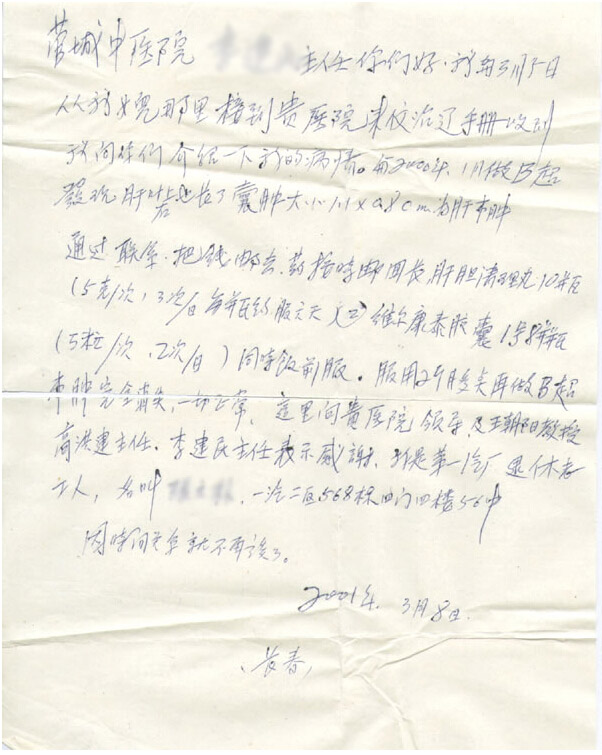 中医院 主任你们好.我于3月5日
从我女儿那里接到贵医院来仪治疗手册一收到
我向你们介绍一下我的病情。2000年.1月做B超
发现肝长了囊肿大小1.1×0.8cm.为肝囊肿
通过联系.把钱邮去.药按時邮回 肝胆清理丸10瓶
(5克/次,3次/日每瓶约服六天)(二)维尔康泰胶囊1号8瓶
(5粒/次.2次/日)同時饭前服.服用2个月多美再做B超
囊肿完全消失,一切正常,这里向贵医院领导,及王朝阳教授
高洪建主任.李建民主任表示感謝.我是第一汽厂退休老
工人,名叫 ,一汽二区568栋四门四楼56中
因時间关系就不再谈了。
2001年.3月8日.
(长春)